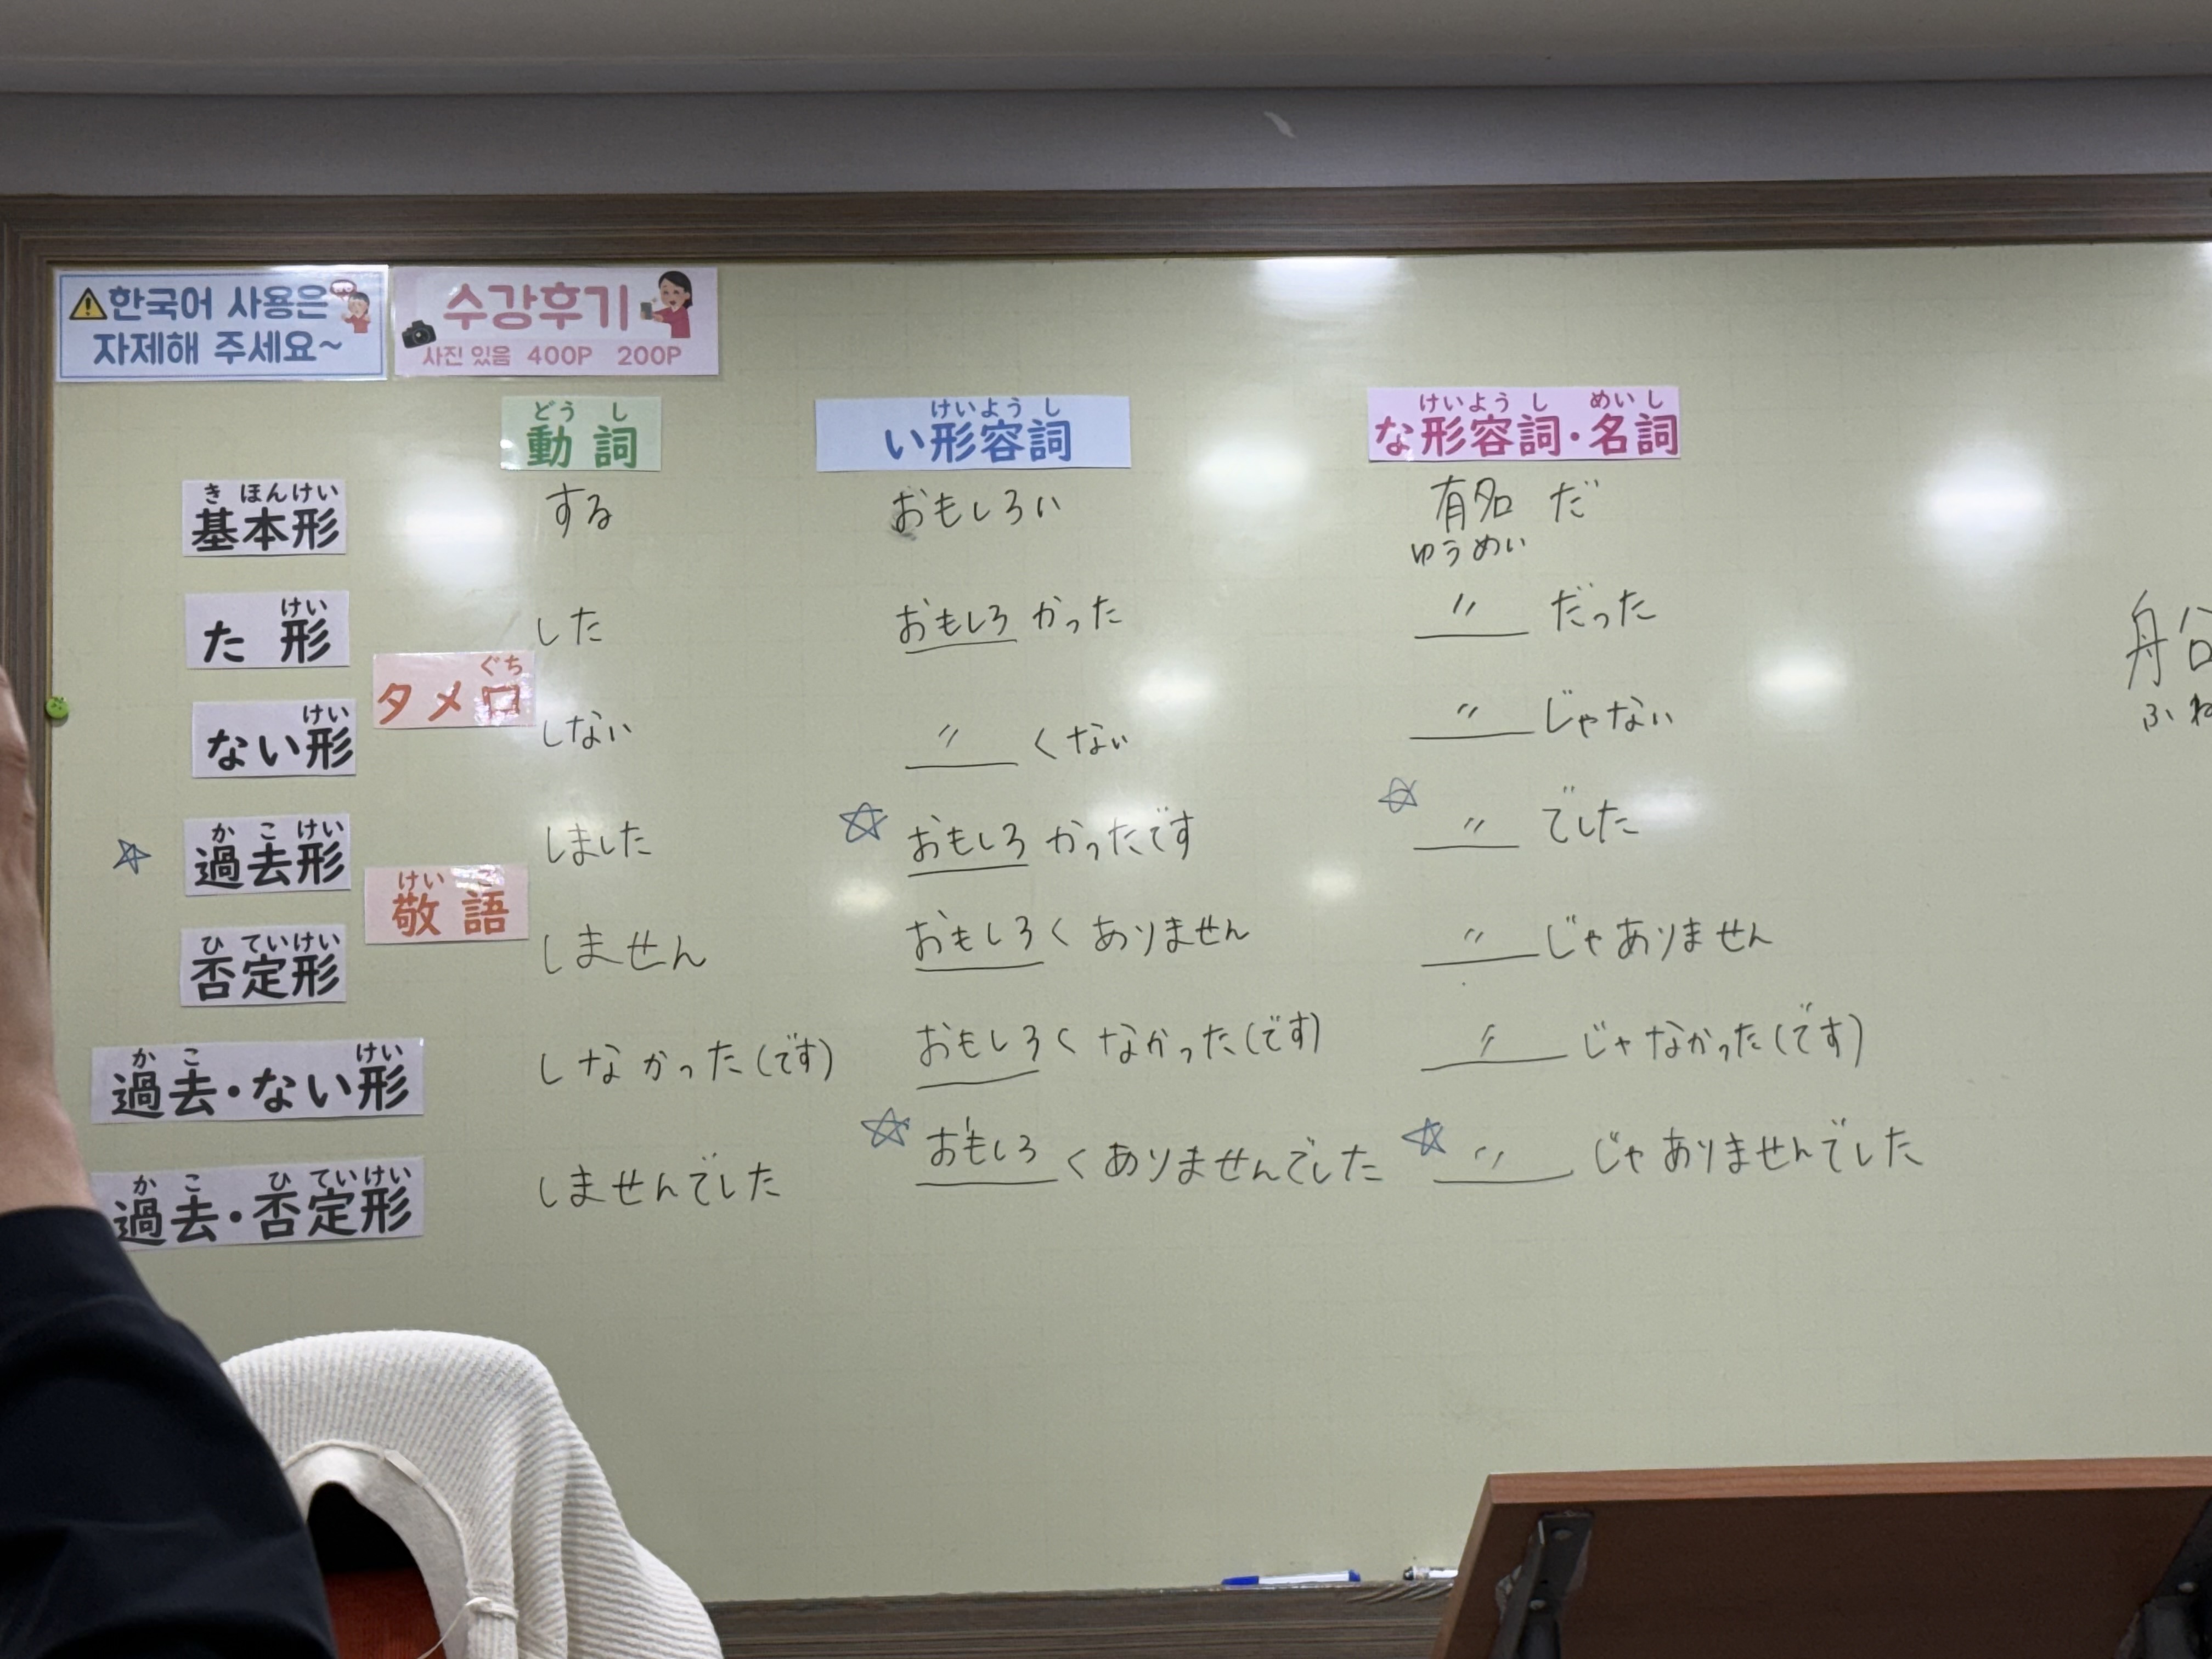 한국어 사용은
자제해 주세요~
수강후기
사진 있음 400P 200P
どうし
動詞
けいようし
い形容詞
けいようし めいし
な形容詞・名詞
きほんけい
基本形
する
おもしろい
有名だ
ゆうめい
けい
た形
した
おもしろかった
〃だった
ぐち
タメ口
けい
ない形
しない
〃くない
〃じゃない
☆
かこけい
過去形
しました
☆おもしろかったです
☆〃でした
けいご
敬語
ひていけい
否定形
しません
おもしろくありません
〃じゃありません
かこ けい
過去・ない形
しなかった(です)
おもしろくなかった(です)
〃じゃなかった(です)
かこ ひていけい
過去・否定形
しませんでした
☆おもしろくありませんでした
☆〃じゃありませんでした
船
ふね